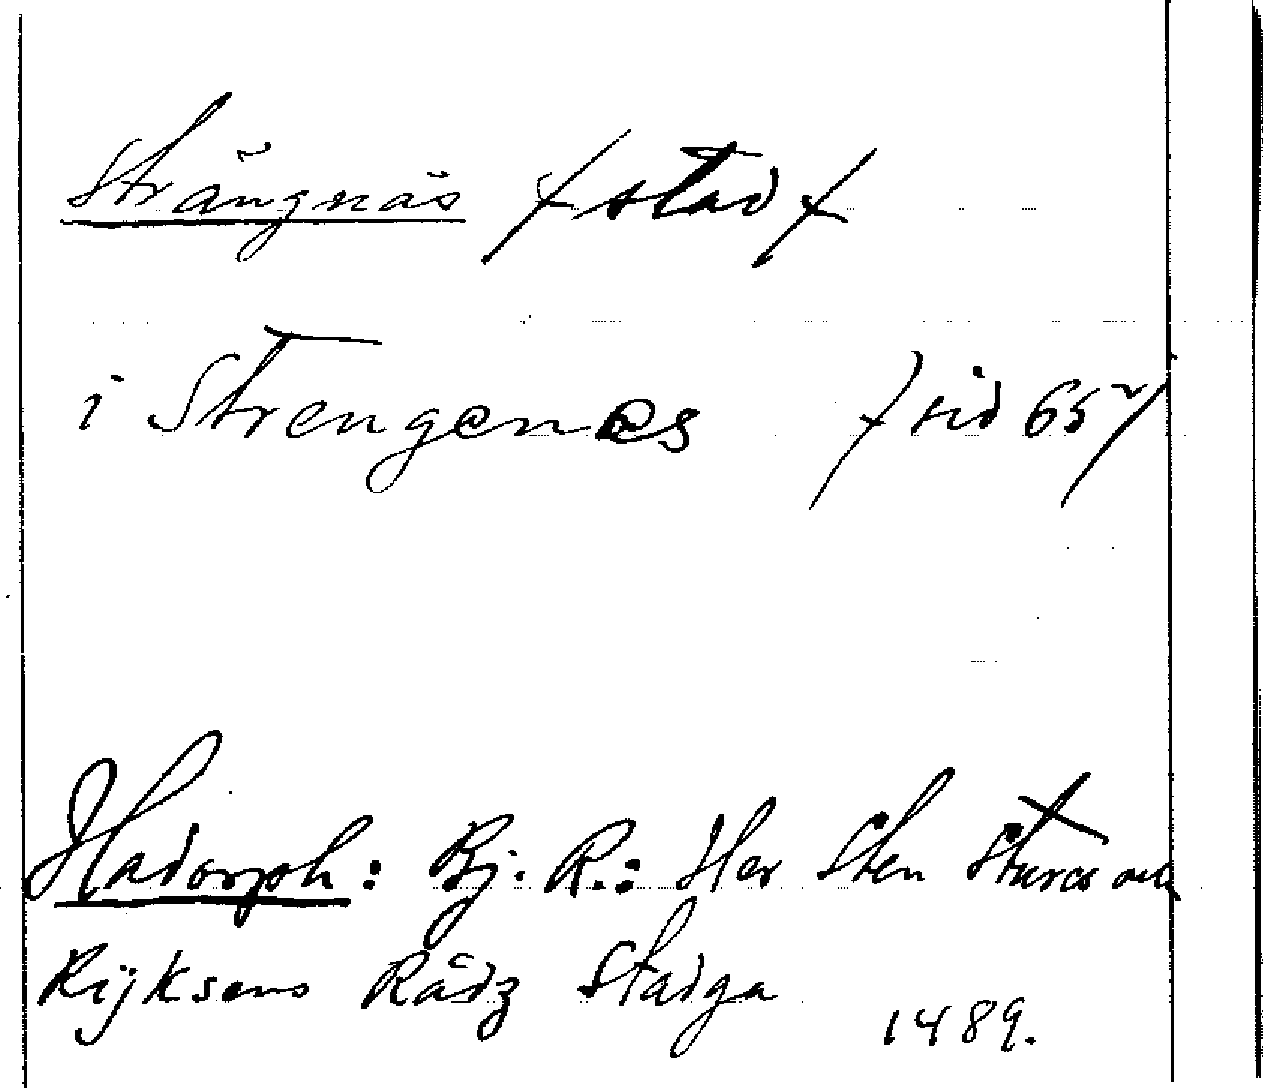 Strängnäs / stad /
i Strengenes / sid 65 /
Hadorph: Bj. R.: Her Sten Stures och
Rijksens Rådz Stadga 1489.